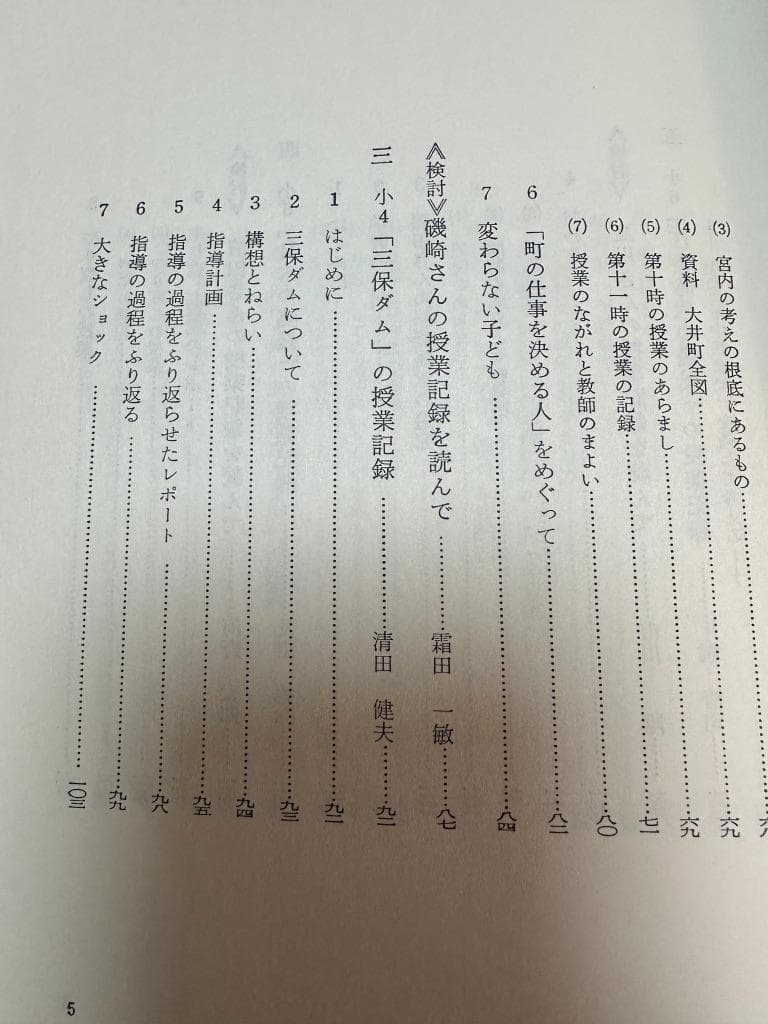 (3) 宮内の考えの根底にあるもの……………六八
(4) 資料 大井町全図……………六九
(5) 第十時の授業のあらまし……………六九
(6) 第十一時の授業の記録……………七一
(7) 授業のながれと教師のまよい……………八〇
6 「町の仕事を決める人」をめぐって……………八二
7 変わらない子ども……………八四
《検討》磯崎さんの授業記録を読んで……………霜田 一敏……八七
三 小4「三保ダム」の授業記録……………清田 健夫……九二
1 はじめに……………九二
2 三保ダムについて……………九三
3 構想とねらい……………九四
4 指導計画……………九五
5 指導の過程をふり返らせたレポート……………九八
6 指導の過程をふり返る……………九九
7 大きなショック……………一〇三
5